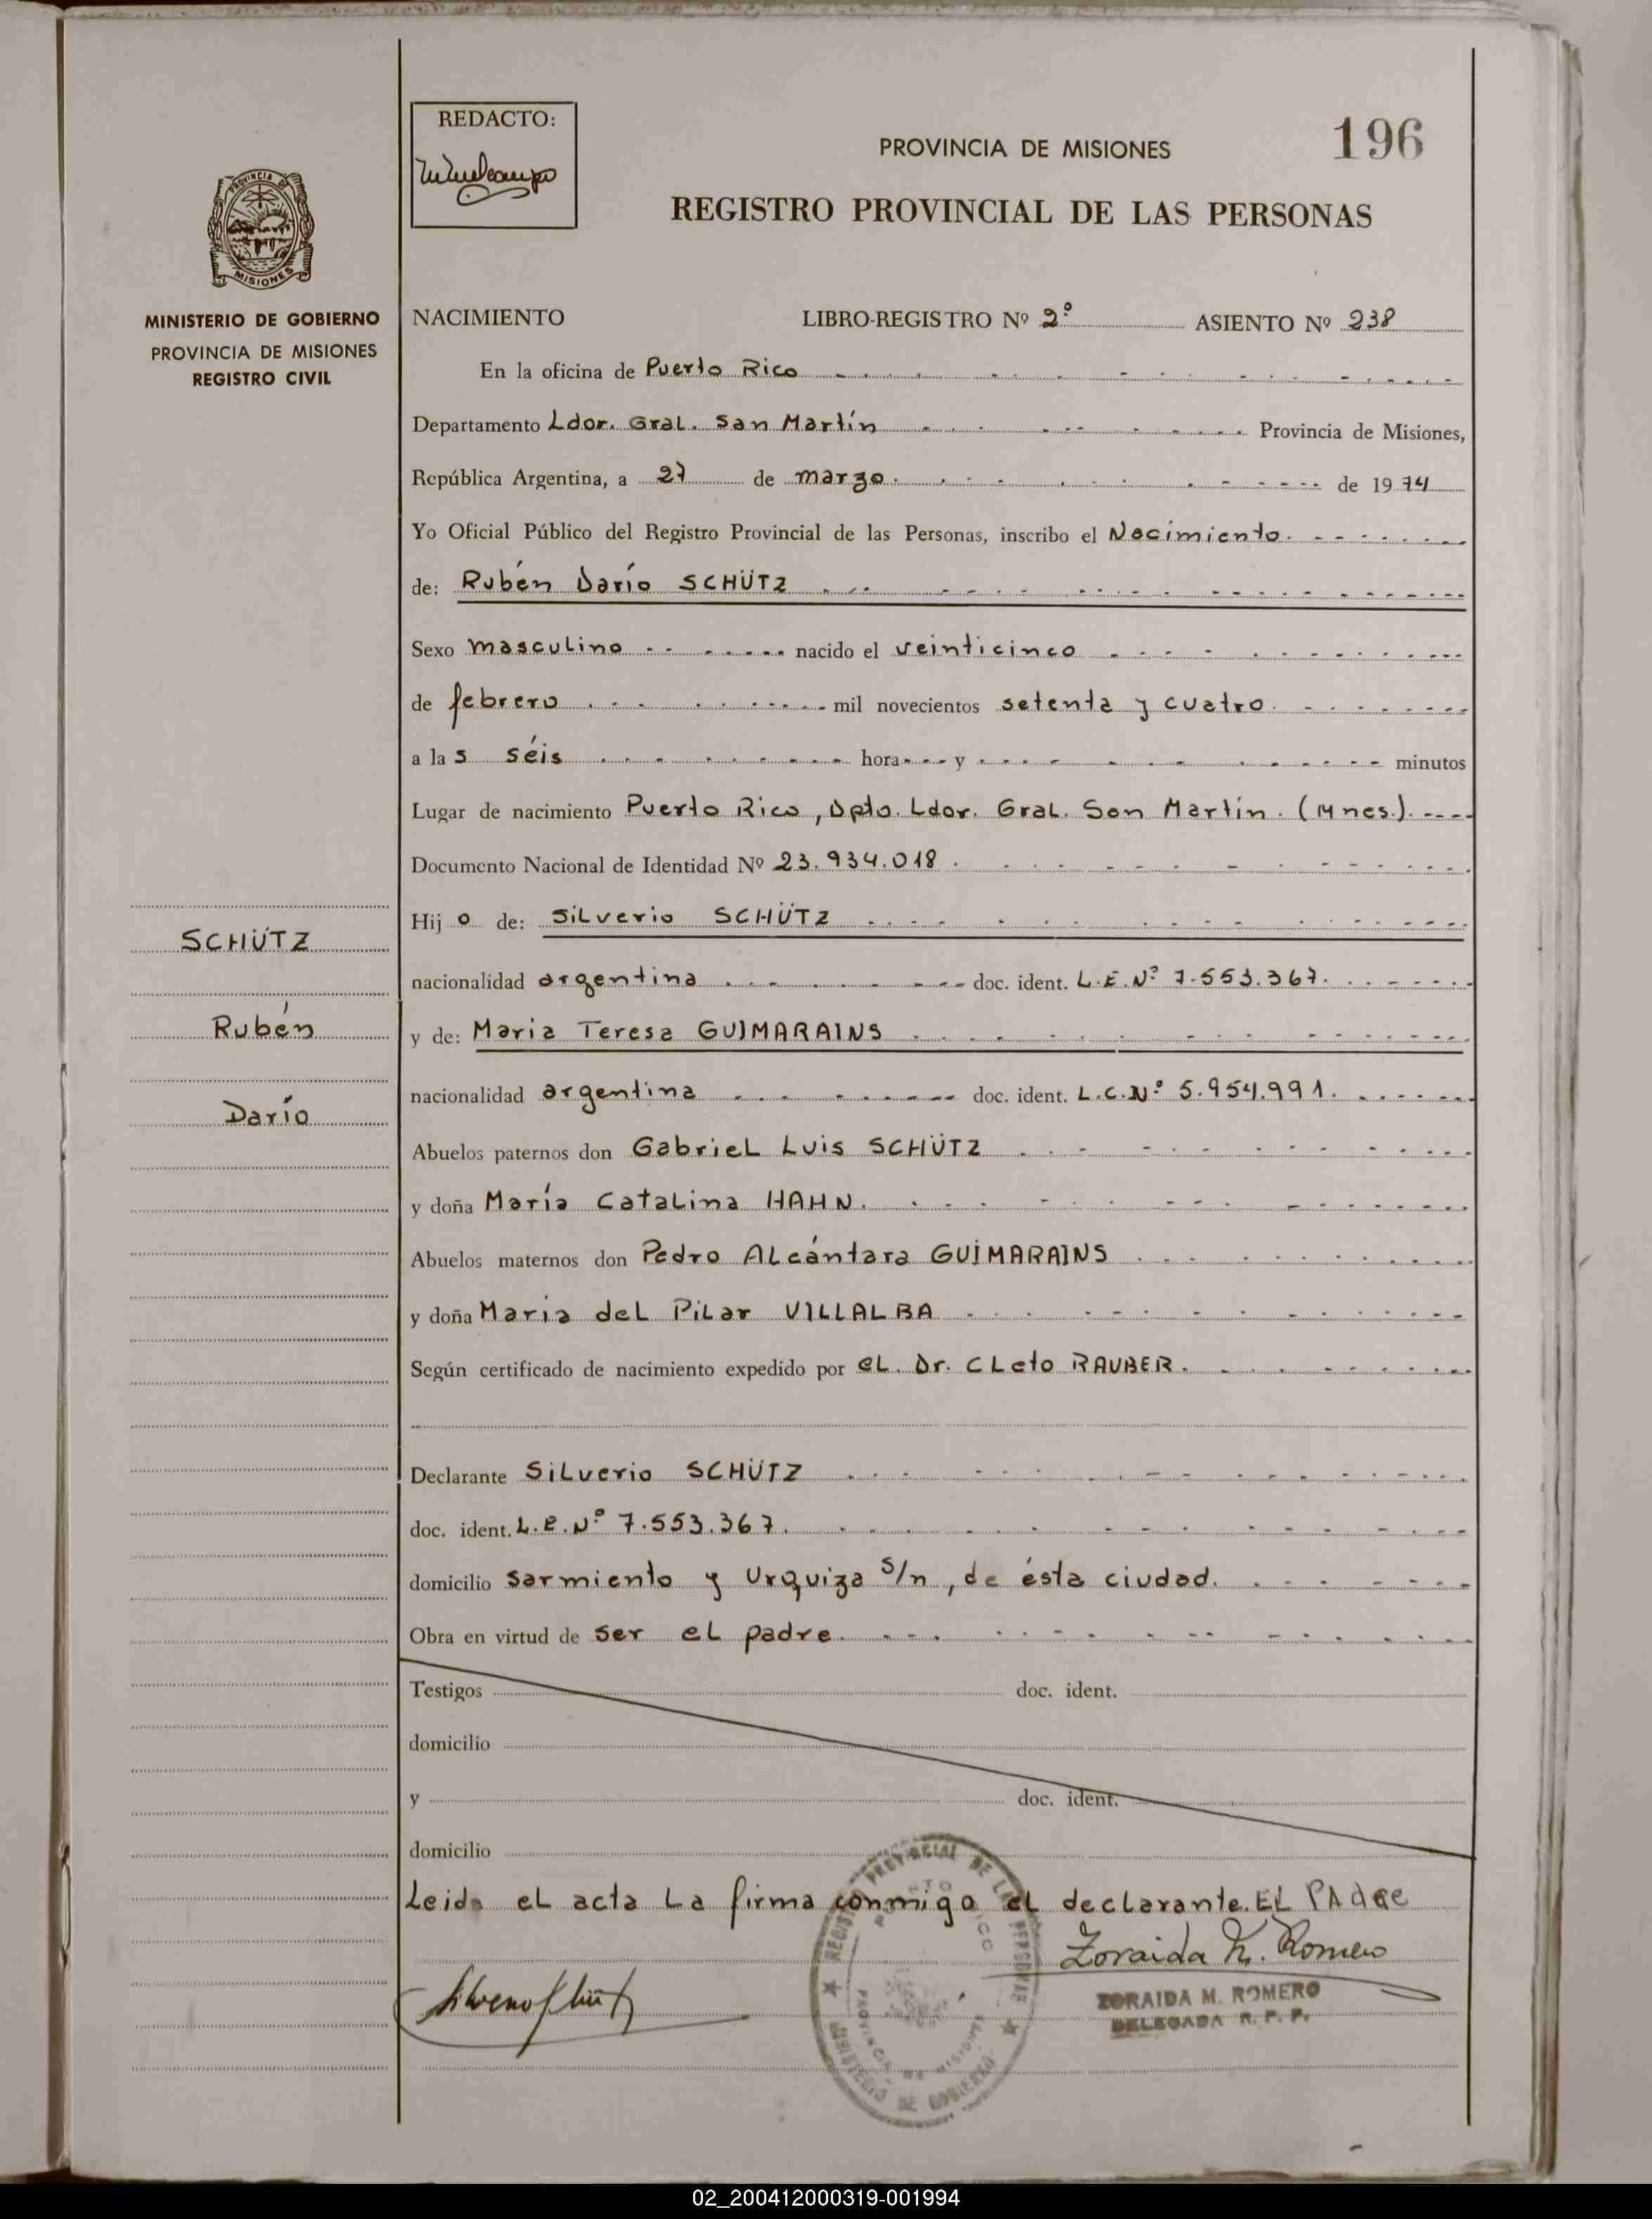 REDACTO:
196
PROVINCIA DE MISIONES
REGISTRO PROVINCIAL DE LAS PERSONAS
PROVINCIA DE
MISIONES
MINISTERIO DE GOBIERNO
PROVINCIA DE MISIONES
REGISTRO CIVIL
NACIMIENTO LIBRO-REGISTRO Nº 2º ASIENTO Nº 238
En la oficina de Puerto Rico
Departamento Ldor. Gral. San Martín Provincia de Misiones,
República Argentina, a 27 de marzo. de 1974
Yo Oficial Público del Registro Provincial de las Personas, inscribo el Nacimiento.
de: Rubén Darío SCHÜTZ
Sexo masculino nacido el veinticinco
de febrero mil novecientos setenta y cuatro
a las séis hora y minutos
Lugar de nacimiento Puerto Rico, Dpto. Ldor. Gral. San Martín. (Mnes.).
Documento Nacional de Identidad Nº 23.934.018
Hijo de: Silverio SCHÜTZ
nacionalidad argentina doc. ident. L.E.Nº 7.553.367.
y de: Maria Teresa GUIMARAINS
nacionalidad argentina doc. ident. L.C.Nº 5.954.991.
Abuelos paternos don Gabriel Luis SCHÜTZ
y doña María Catalina HAHN.
Abuelos maternos don Pedro Alcántara GUIMARAINS
y doña Maria del Pilar VILLALBA
Según certificado de nacimiento expedido por el Dr. Cleto RAUBER.
Declarante Silverio SCHÜTZ
doc. ident. L.E.Nº 7.553.367.
domicilio Sarmiento y Urquiza s/n, de ésta ciudad.
Obra en virtud de ser el padre.
Testigos doc. ident.
domicilio
y doc. ident.
domicilio
Leida el acta la firma conmigo el declarante. EL PAdRe
Zoraida M. Romero
ZORAIDA M. ROMERO
DELEGADA R. P. P.
REGISTRO PROVINCIAL DE LAS PERSONAS
PROVINCIA DE MISIONES
MINISTERIO DE GOBIERNO
SCHÜTZ
Rubén
Darío
02_200412000319-001994